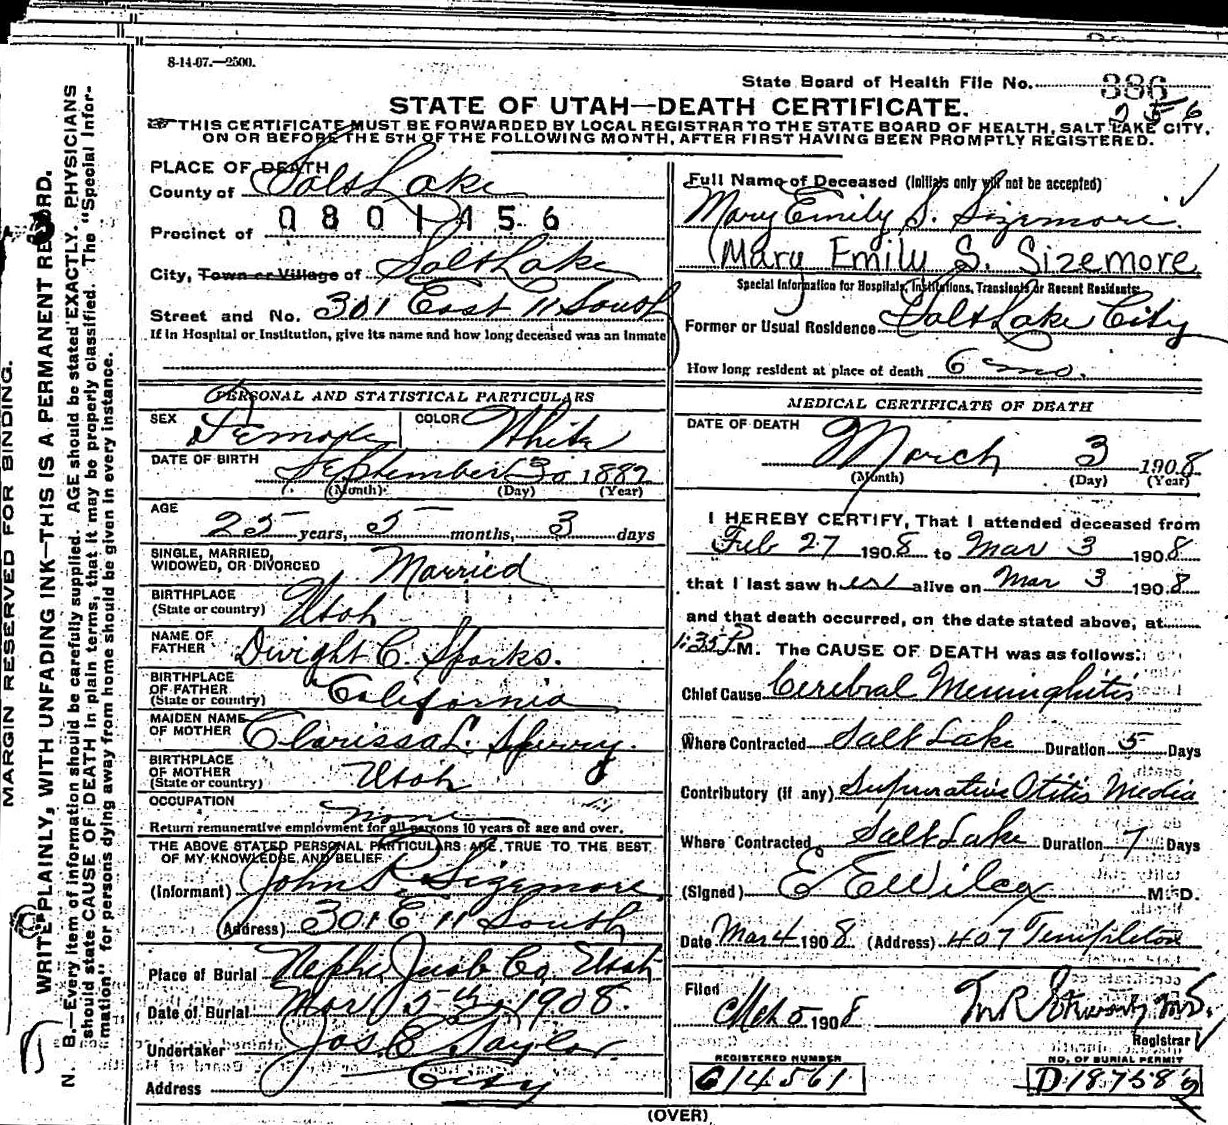 8-14-07.—2500.
State Board of Health File No. 386
2 5 6
STATE OF UTAH—DEATH CERTIFICATE.
THIS CERTIFICATE MUST BE FORWARDED BY LOCAL REGISTRAR TO THE STATE BOARD OF HEALTH, SALT LAKE CITY,
ON OR BEFORE THE 5TH OF THE FOLLOWING MONTH, AFTER FIRST HAVING BEEN PROMPTLY REGISTERED.
MARGIN RESERVED FOR BINDING.
WRITE PLAINLY, WITH UNFADING INK—THIS IS A PERMANENT RECORD.
N. B.—Every item of information should be carefully supplied. AGE should be stated EXACTLY. PHYSICIANS
should state CAUSE OF DEATH in plain terms, that it may be properly classified. The "Special Infor-
mation" for persons dying away from home should be given in every instance.
PLACE OF DEATH
County of Salt Lake
0801456
Precinct of
City, Town or Village of Salt Lake
Street and No. 301 East 11 South
If in Hospital or Institution, give its name and how long deceased was an inmate
PERSONAL AND STATISTICAL PARTICULARS
SEX Female COLOR White
DATE OF BIRTH September 30 1882
(Month) (Day) (Year)
AGE
25 years, 5 months, 3 days
SINGLE, MARRIED,
WIDOWED, OR DIVORCED Married
BIRTHPLACE
(State or country) Utah
NAME OF
FATHER Dwight C. Sparks.
BIRTHPLACE
OF FATHER
(State or country) California
MAIDEN NAME
OF MOTHER Clarissa L. Sperry.
BIRTHPLACE
OF MOTHER
(State or country) Utah
OCCUPATION none
Return remunerative employment for all persons 10 years of age and over.
THE ABOVE STATED PERSONAL PARTICULARS ARE TRUE TO THE BEST
OF MY KNOWLEDGE AND BELIEF
(Informant) John R. Sizemore
(Address) 301 E 11 South
Place of Burial Nephi Juab Co Utah
Date of Burial Mar 5th 1908.
Undertaker Jos. E. Taylor.
Address City
Full Name of Deceased (Initials only will not be accepted)
Mary Emily S. Sizemore.
(Mary Emily S. Sizemore
Special Information for Hospitals, Institutions, Transients or Recent Residents:
Former or Usual Residence Salt Lake City
How long resident at place of death 6 mo.
MEDICAL CERTIFICATE OF DEATH
DATE OF DEATH
March 3 1908
(Month) (Day) (Year)
I HEREBY CERTIFY, That I attended deceased from
Feb 27 1908 to Mar 3 1908
that I last saw her alive on Mar 3 1908
and that death occurred, on the date stated above, at
1:35 P.M. The CAUSE OF DEATH was as follows:
Chief Cause Cerebral Meninghitis
Where Contracted Salt Lake Duration 5 Days
Contributory (if any) Supurative Otitis Media
Where Contracted Salt Lake Duration 7 Days
(Signed) E E Wilcox M.D.
Date Mar 4 1908 (Address) 407 Templeton
Filed
Mch 5 1908
Registrar
REGISTERED NUMBER
C14561
NO. OF BURIAL PERMIT
D18758
(OVER)